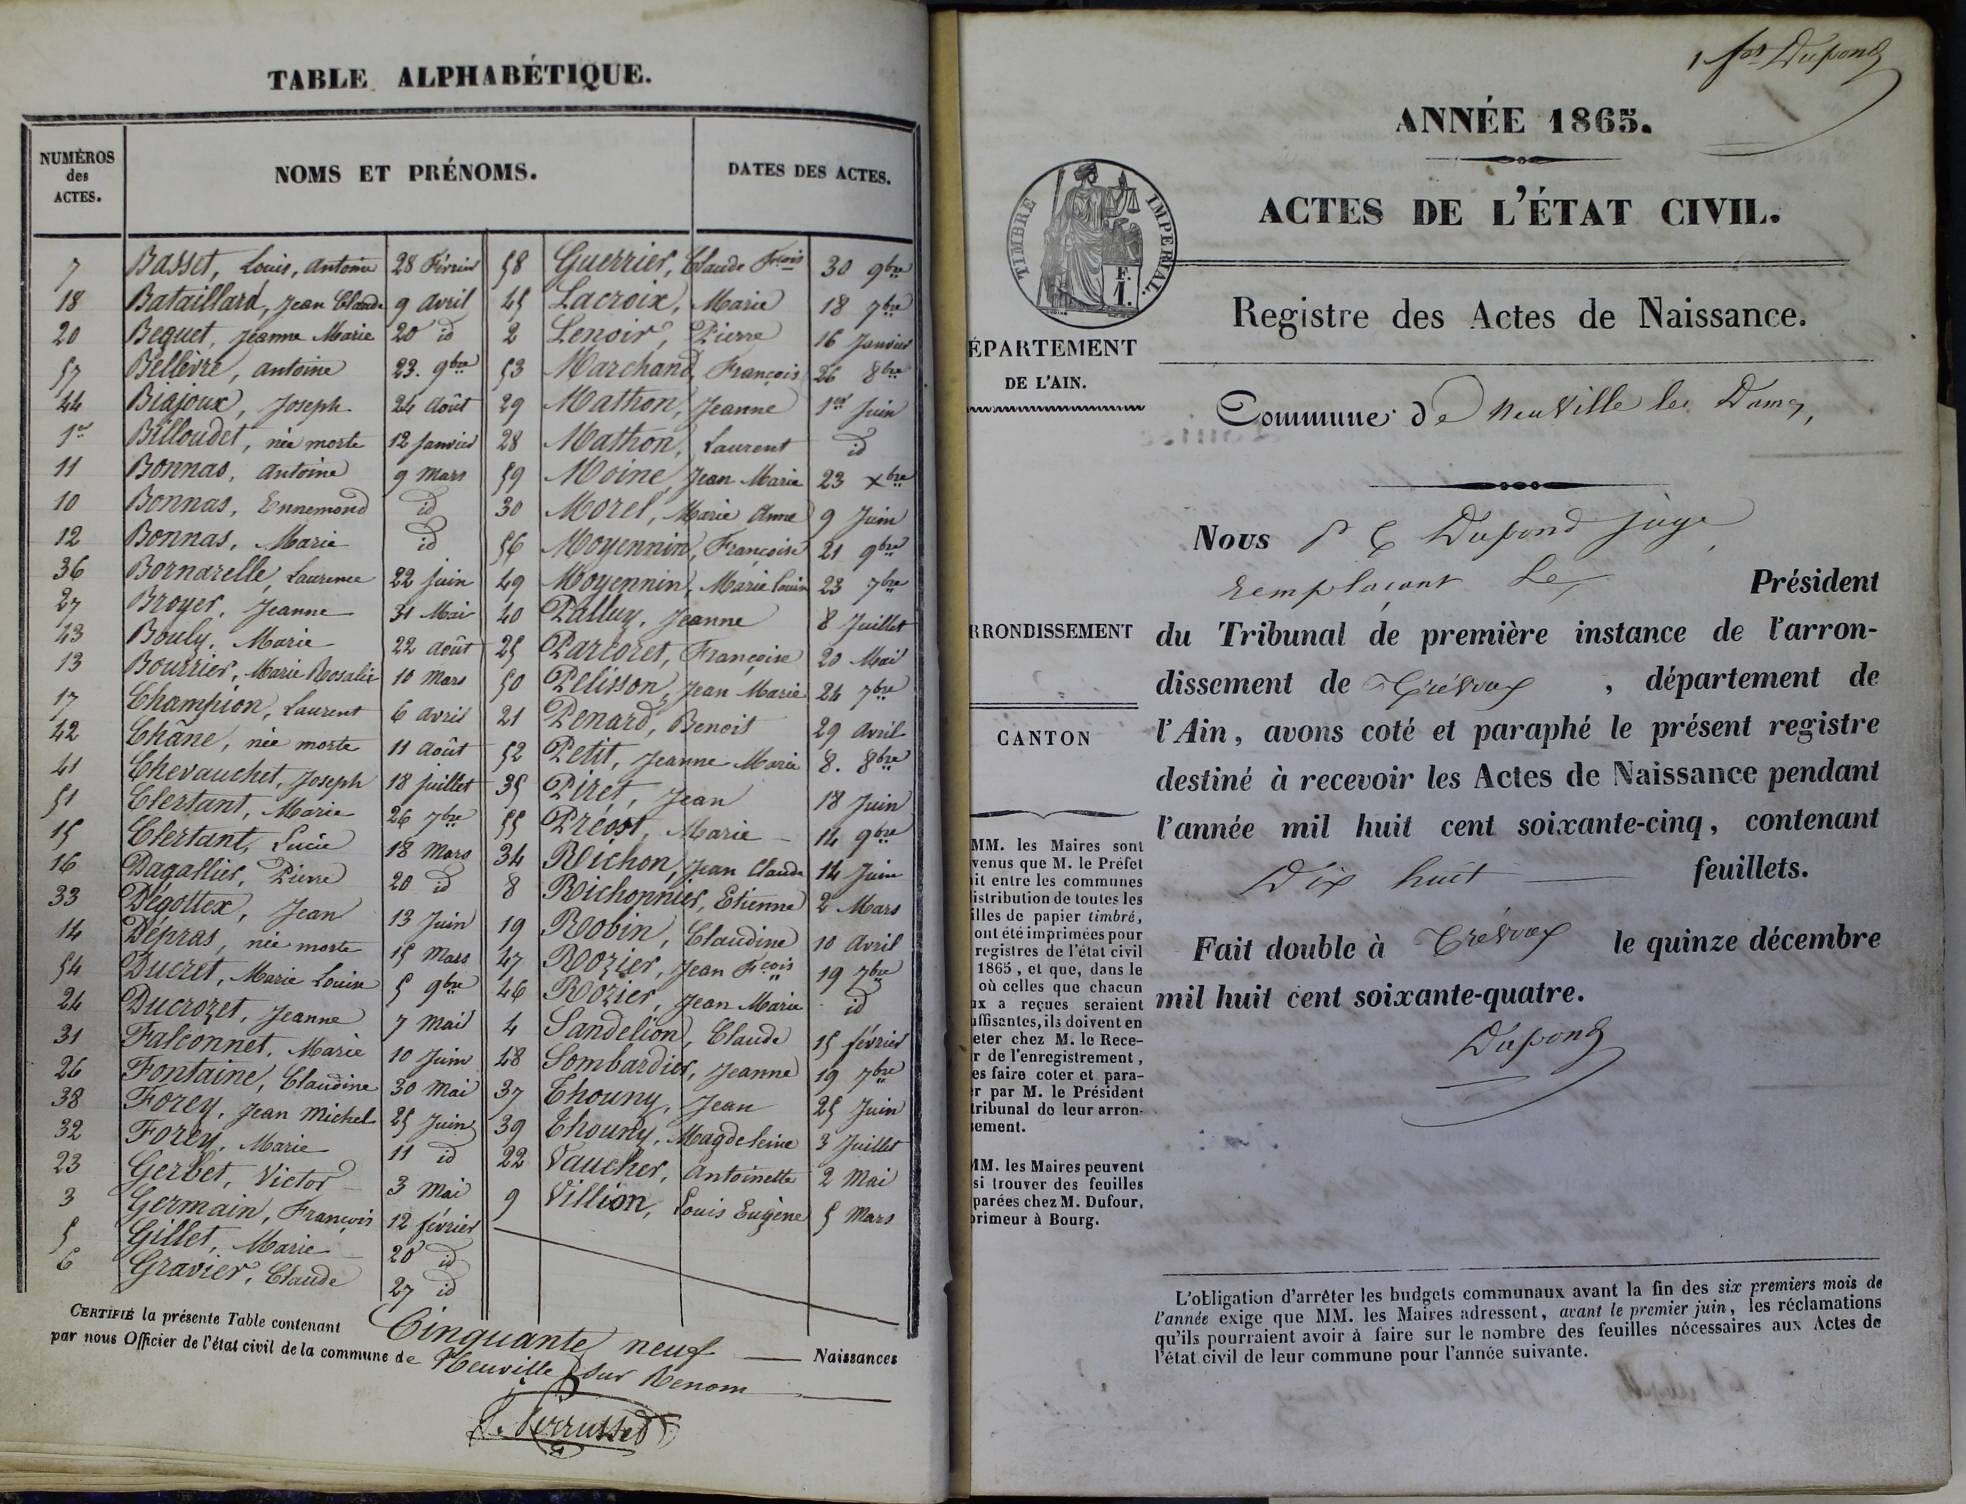 TABLE ALPHABÉTIQUE.
NUMÉROS
des
ACTES.
NOMS ET PRÉNOMS.
DATES DES ACTES.
7 Basset, Louis, Antoine 28 Février
18 Bataillard, Jean Claude 9 avril
20 Bequet, Jeanne Marie 20 id
57 Bellevre, antoine 23. 9bre
44 Biajoux, Joseph 24 août
1er Billoudet, née morte 12 janvier
11 Bonnas, antoine 9 mars
10 Bonnas, Ennemond id
12 Bonnas, Marie id
36 Bornarelle, Laurence 22 juin
27 Broyer, Jeanne 31 Mai
43 Bouly, Marie 22 août
13 Bourrier, Marie Rosalie 10 mars
17 Champion, Laurent 6 avril
42 Châne, née morte 11 août
41 Chevauchet, Joseph 18 juillet
51 Clertant, Marie 26 7bre
15 Clertant, Lucie 18 Mars
16 Dagallier, Pierre 20 id
33 Dégottex, Jean 13 Juin
14 Dépras, née morte 15 Mars
54 Ducret, Marie Louise 5 9bre
24 Ducrozet, Jeanne 7 Mai
31 Falconnet, Marie 10 Juin
26 Fontaine, Claudine 30 Mai
38 Forey, Jean Michel 25 Juin
32 Forey, Marie 11 id
23 Gerbet, Victor 3 Mai
3 Germain, François 12 février
5 Gillet, Marie 20 id
6 Gravier, Claude 27 id
58 Guerrier, Claude Fçois 30 9bre
45 Lacroix, Marie 18 7bre
2 Lenoir, Pierre 16 Janvier
53 Marchand, François 26 8bre
29 Mathon, Jeanne 1er Juin
28 Mathon, Laurent id
59 Moine, Jean Marie 23 xbre
30 Morel, Marie Anne 9 Juin
56 Moyennin, Françoise 21 9bre
49 Moyennin, Marie Louise 23 7bre
40 Palluy, Jeanne 8 Juillet
25 Parcoret, Françoise 20 Mai
50 Pelisson, Jean Marie 24 7bre
21 Penard, Benoit 29 avril
52 Petit, Jeanne Marie 8. 8bre
35 Piret, Jean 18 Juin
55 Préost, Marie 14 9bre
34 Richon, Jean Claude 14 Juin
8 Richonnier, Etienne 2 Mars
19 Robin, Claudine 10 Avril
47 Rozier, Jean Fçois 19 7bre
46 Rozier, Jean Marie id
4 Sandelion, Claude 15 février
48 Sombardier, Jeanne 19 7bre
37 Thouny, Jean 25 Juin
39 Thouny, Magdeleine 3 Juillet
22 Vaucher, Antoinette 2 Mai
9 Villion, Louis Eugène 5 Mars
CERTIFIÉ la présente Table contenant Cinquante neuf Naissances
par nous Officier de l'état civil de la commune de Neuville sur Renom
Perrusset
1 Dupond
ANNÉE 1865.
ACTES DE L'ÉTAT CIVIL.
TIMBRE IMPÉRIAL.
F.
1.
Registre des Actes de Naissance.
ÉPARTEMENT
DE L'AIN.
Commune de Neuville les Dames,
Nous Dupond juge
remplaçant Le Président
RRONDISSEMENT
du Tribunal de première instance de l'arron-
dissement de Trévoux, département de
l'Ain, avons coté et paraphé le présent registre
CANTON
destiné à recevoir les Actes de Naissance pendant
l'année mil huit cent soixante-cinq, contenant
Dix huit feuillets.
Fait double à Trévoux le quinze décembre
mil huit cent soixante-quatre.
Dupond
MM. les Maires sont
venus que M. le Préfet
it entre les communes
istribution de toutes les
illes de papier timbré,
ont été imprimées pour
registres de l'état civil
1865, et que, dans le
où celles que chacun
ux a reçues seraient
uffisantes, ils doivent en
eter chez M. le Rece-
r de l'enregistrement,
es faire coter et para-
r par M. le Président
tribunal de leur arron-
sement.
MM. les Maires peuvent
si trouver des feuilles
parées chez M. Dufour,
primeur à Bourg.
L'obligation d'arrêter les budgets communaux avant la fin des six premiers mois de
l'année exige que MM. les Maires adressent, avant le premier juin, les réclamations
qu'ils pourraient avoir à faire sur le nombre des feuilles nécessaires aux Actes de
l'état civil de leur commune pour l'année suivante.